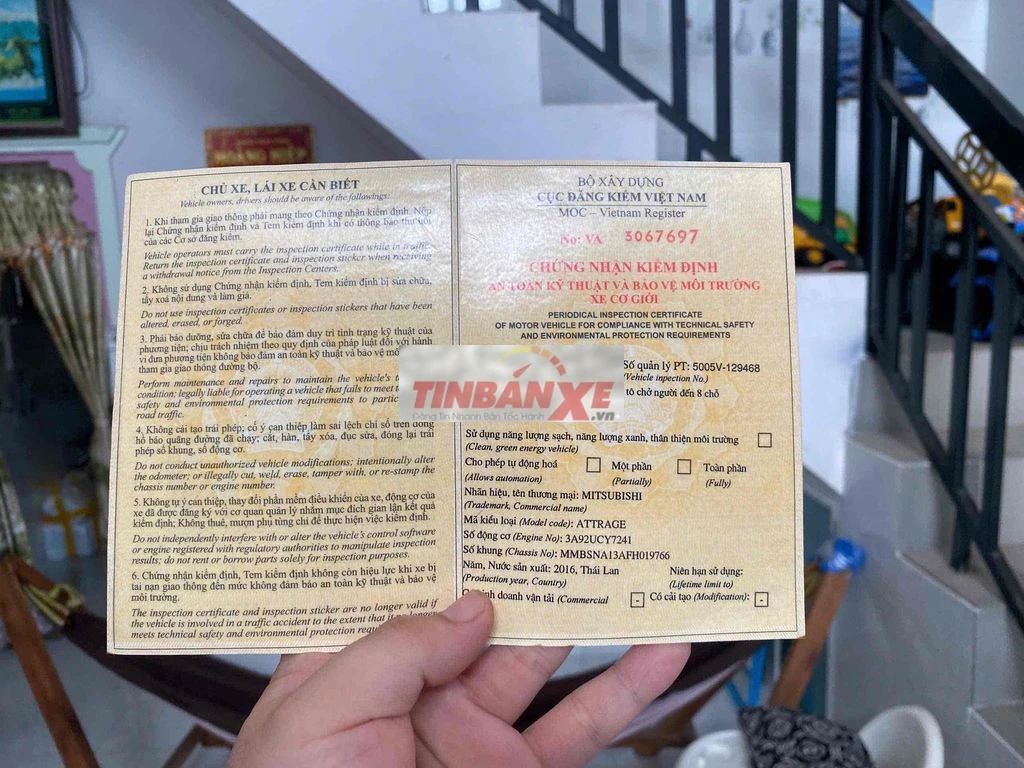 CHỦ XE, LÁI XE CẦN BIẾT
Vehicle owners, drivers should be aware of the followings:
1. Khi tham gia giao thông phải mang theo Chứng nhận kiểm định. Nộp
lại Chứng nhận kiểm định và Tem kiểm định khi có thông báo thu hồi
của các Cơ sở đăng kiểm.
Vehicle operators must carry the inspection certificate while in traffic.
Return the inspection certificate and inspection sticker when receiving
a withdrawal notice from the Inspection Centers.
2. Không sử dụng Chứng nhận kiểm định, Tem kiểm định bị sửa chữa,
tẩy xoá nội dung và làm giả.
Do not use inspection certificates or inspection stickers that have been
altered, erased, or forged.
3. Phải bảo dưỡng, sửa chữa để bảo đảm duy trì tình trạng kỹ thuật của
phương tiện; chịu trách nhiệm theo quy định của pháp luật đối với hành
vi đưa phương tiện không bảo đảm an toàn kỹ thuật và bảo vệ mô
tham gia giao thông đường bộ.
Perform maintenance and repairs to maintain the vehicle's
condition; legally liable for operating a vehicle that fails to meet
safety and environmental protection requirements to
road traffic.
4. Không cải tạo trái phép; cố ý can thiệp làm sai lệch chỉ số trên đồng
hồ báo quãng đường đã chạy; cắt, hàn, tẩy xóa, đục sửa, đóng lại trái
phép số khung, số động cơ.
Do not conduct unauthorized vehicle modifications; intentionally alter
the odometer; or illegally cut, weld, erase, tamper with, or re-stamp the
chassis number or engine number.
5. Không tự ý can thiệp, thay đổi phần mềm điều khiển của xe, động cơ của
xe đã được đăng ký với cơ quan quản lý nhằm mục đích gian lận kết quả
kiểm định; Không thuê, mượn phụ tùng chỉ để thực hiện việc kiểm định.
Do not independently interfere with or alter the vehicle's control software
or engine registered with regulatory authorities to manipulate inspection
results; do not rent or borrow parts solely for inspection purposes.
6. Chứng nhận kiểm định, Tem kiểm định không còn hiệu lực khi xe bị
tai nạn giao thông đến mức không đảm bảo an toàn kỹ thuật và bảo vệ
môi trường.
The inspection certificate and inspection sticker are no longer valid if
the vehicle is involved in a traffic accident to the extent that it no longer
meets technical safety and environmental protection
BỘ XÂY DỰNG
CỤC ĐĂNG KIỂM VIỆT NAM
MOC – Vietnam Register
No: VA 3067697
CHỨNG NHẬN KIỂM ĐỊNH
AN TOÀN KỸ THUẬT VÀ BẢO VỆ MÔI TRƯỜNG
XE CƠ GIỚI
PERIODICAL INSPECTION CERTIFICATE
OF MOTOR VEHICLE FOR COMPLIANCE WITH TECHNICAL SAFETY
AND ENVIRONMENTAL PROTECTION REQUIREMENTS
Số quản lý PT: 5005V-129468
(Vehicle inpection No.)
tô chở người đến 8 chỗ
TINBANXE.vn
Đăng Tin Nhanh Bán Tốc Hành
Sử dụng năng lượng sạch, năng lượng xanh, thân thiện môi trường
(Clean, green energy vehicle)
Cho phép tự động hoá Một phần Toàn phần
(Allows automation) (Partially) (Fully)
Nhãn hiệu, tên thương mại: MITSUBISHI
(Trademark, Commercial name)
Mã kiểu loại (Model code): ATTRAGE
Số động cơ (Engine No): 3A92UCY7241
Số khung (Chassis No): MMBSNA13AFH019766
Năm, Nước sản xuất: 2016, Thái Lan Niên hạn sử dụng:
(Production year, Country) (Lifetime limit to)
doanh vận tải (Commercial - Có cải tạo (Modification): -